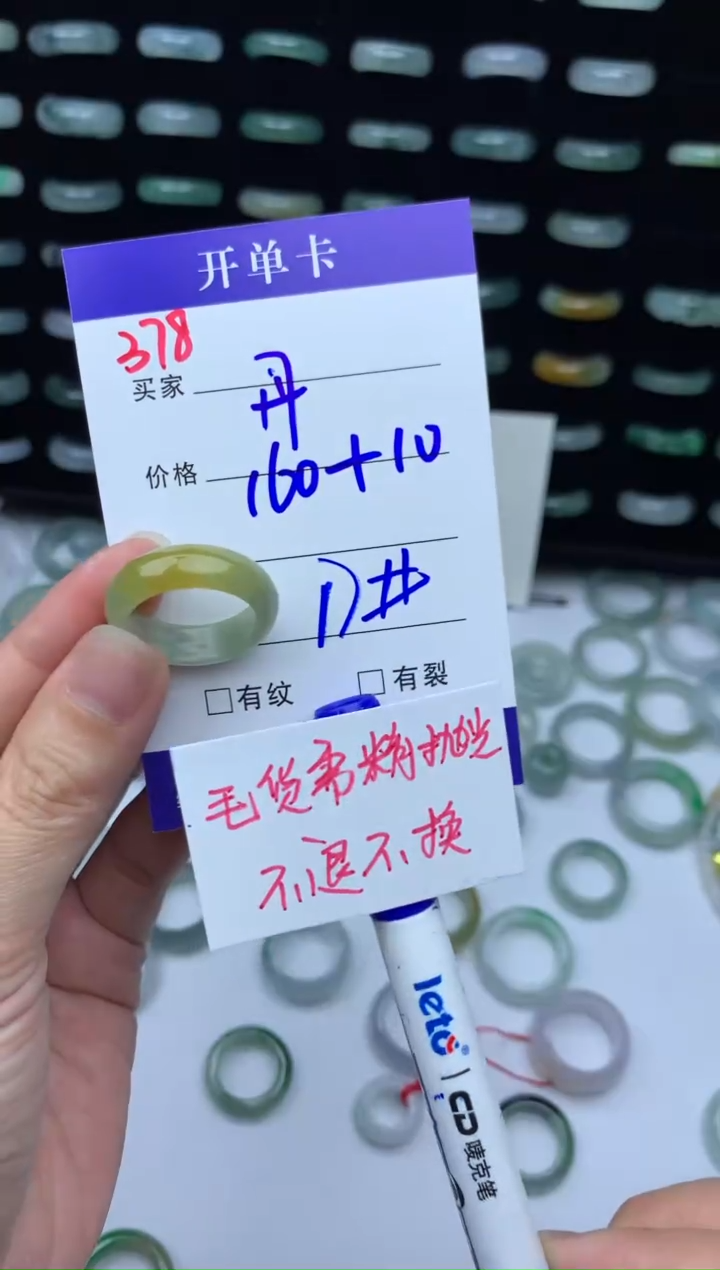 开单卡
378
买家 丹
价格 160+10
17#
□有纹 □有裂
毛货需精抛光
不退不换
leto®
CD 唛克笔